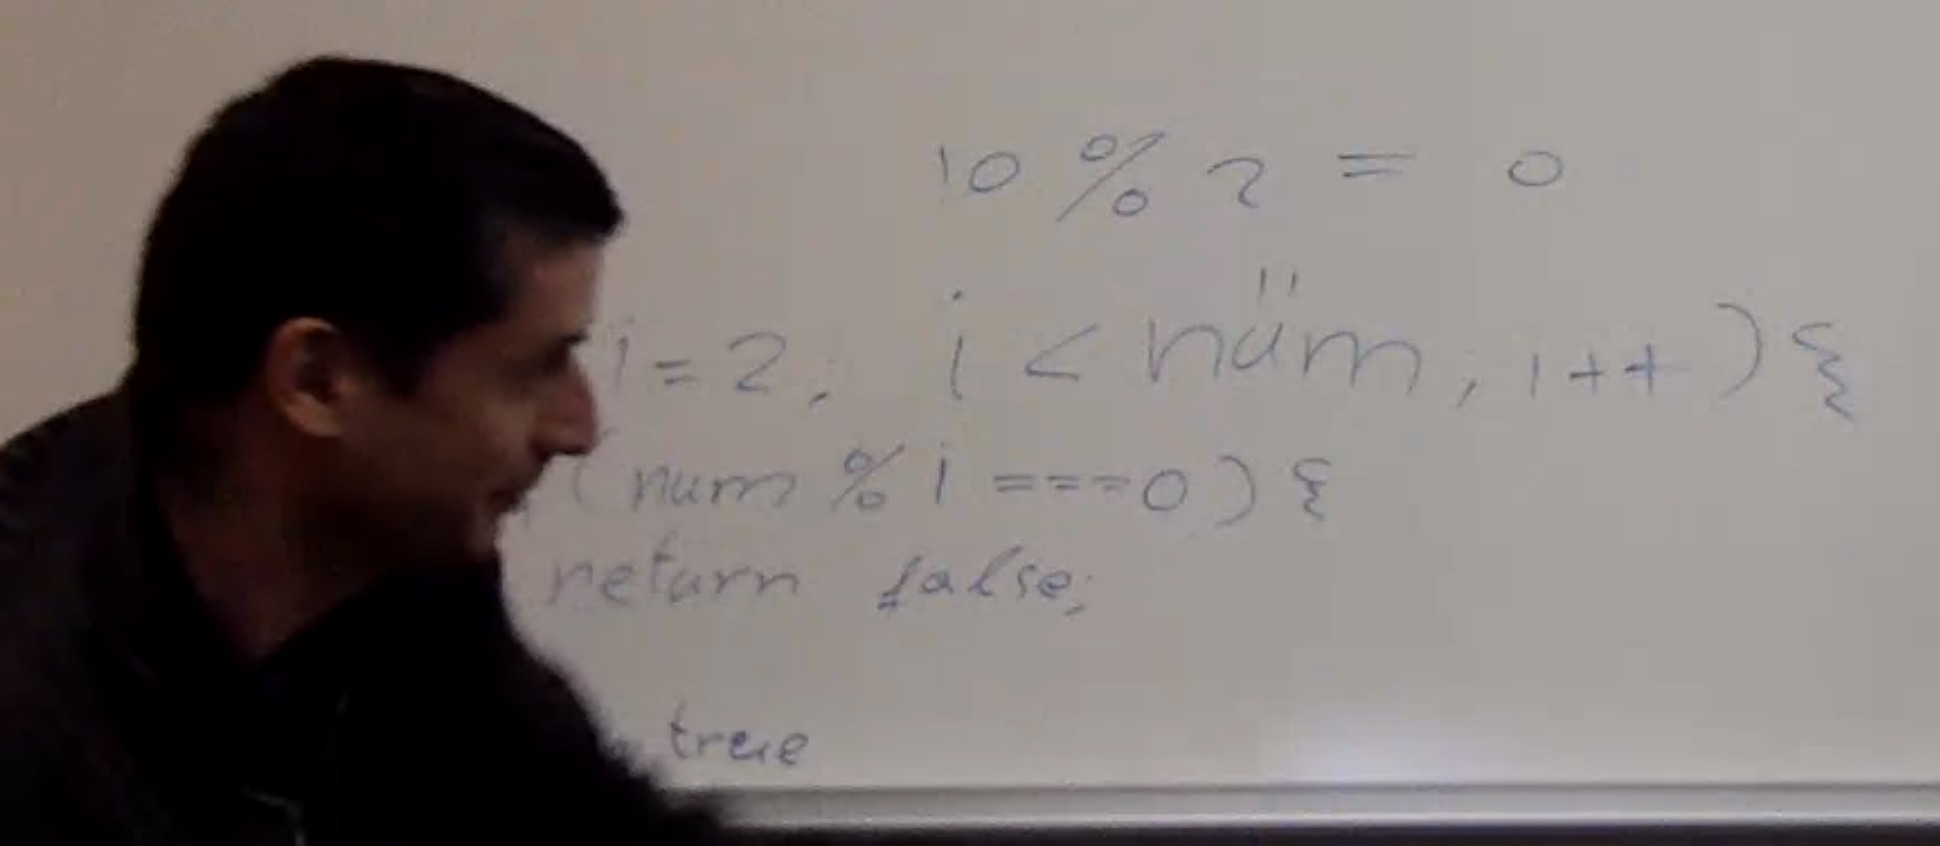 10 % 2 = 0
i = 2; i < num; i++) {
(num % i === 0) {
return false;
true